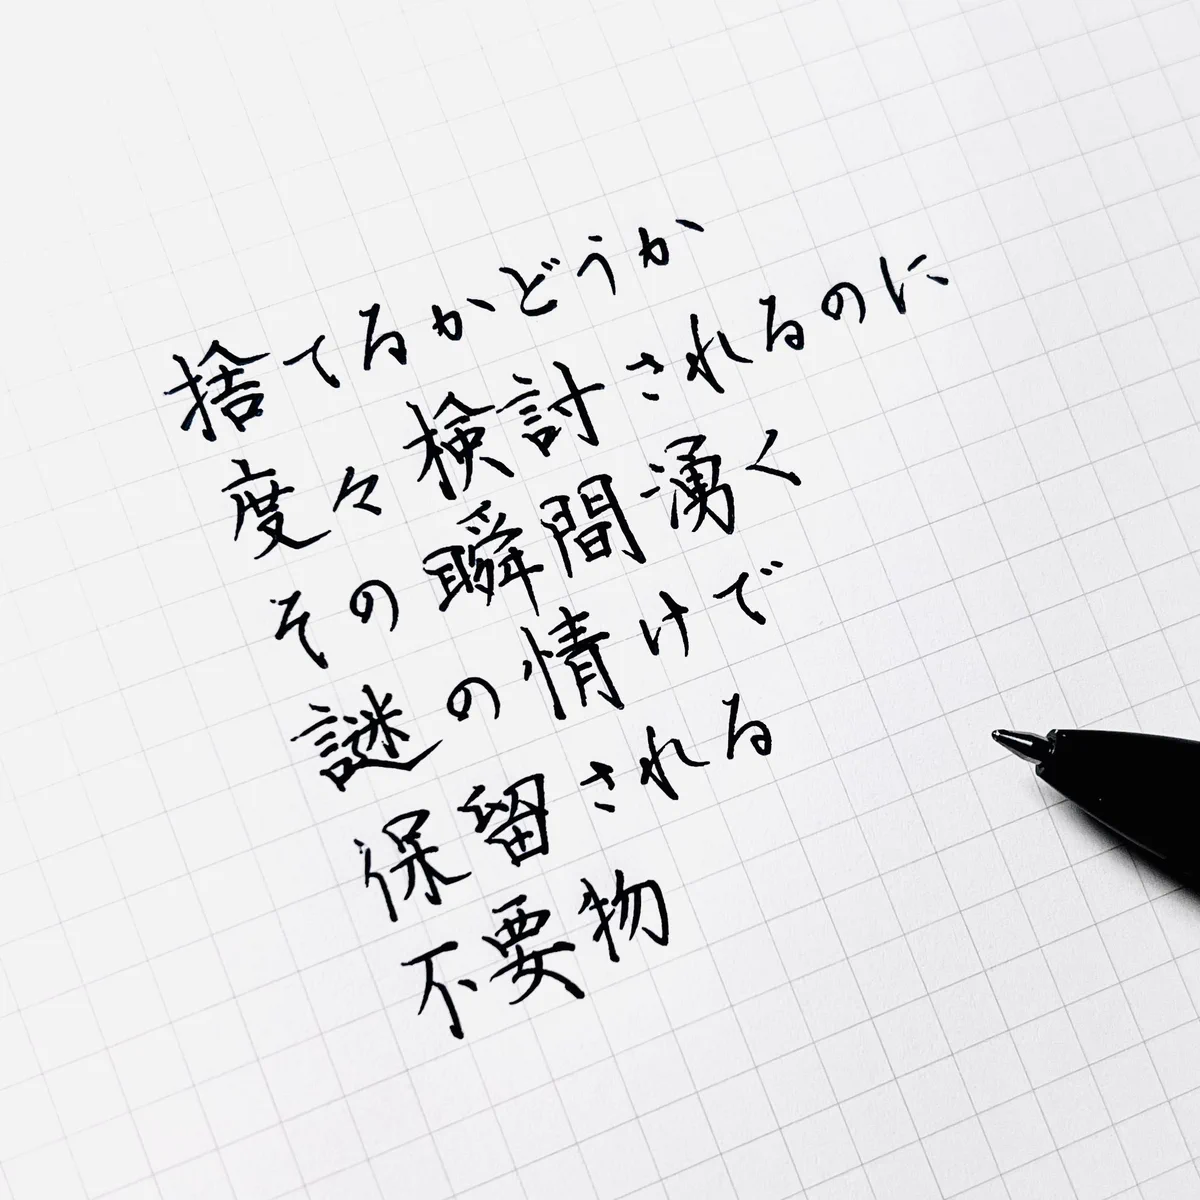 捨てるかどうか
度々検討されるのに
その瞬間湧く
謎の情けで
保留される
不要物